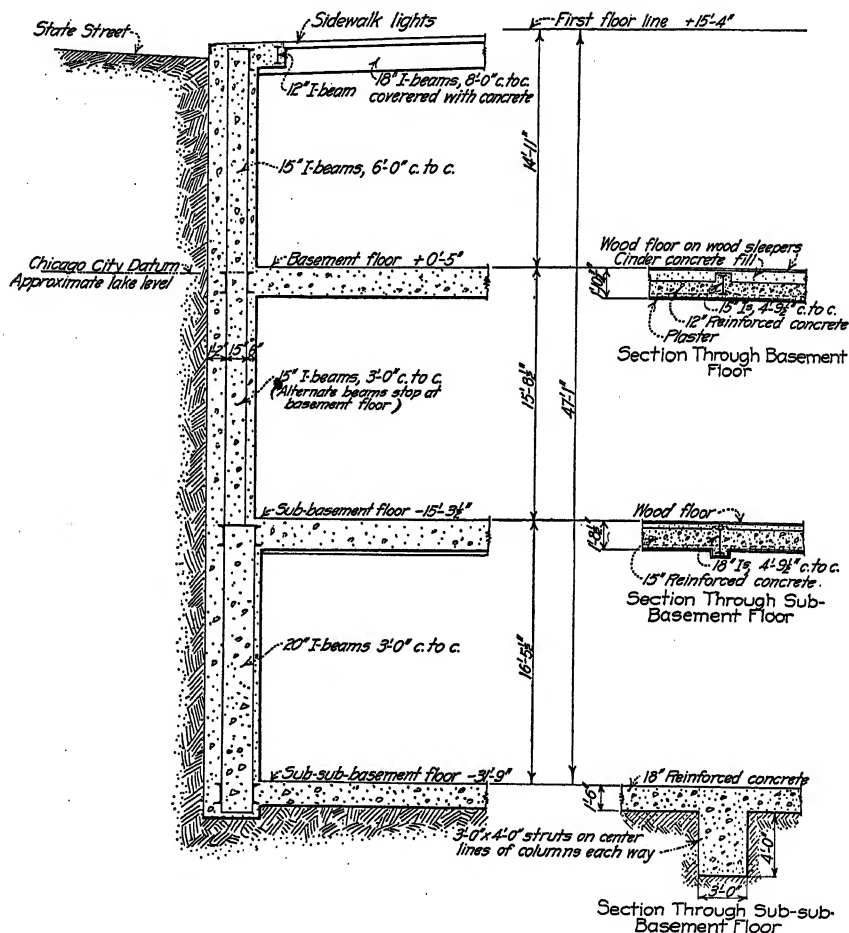 State Street
Sidewalk lights
First floor line +15'-4"
12" I-beam
18" I-beams, 8'-0" c. to c.
coverered with concrete
15" I-beams, 6'-0" c. to c.
14'-11"
Chicago City Datum
Approximate lake level
Basement floor +0'-5"
Wood floor on wood sleepers
Cinder concrete fill
15" Is, 4'-9½" c. to c.
12" Reinforced concrete
Plaster
Section Through Basement
Floor
15"
15" I-beams, 3'-0" c. to c.
(Alternate beams stop at
basement floor)
15'-8½"
47'-1"
Sub-basement floor -15'-3½"
Wood floor
1'-8½"
18" Is, 4'-9½" c. to c.
15" Reinforced concrete.
Section Through Sub-
Basement Floor
20" I-beams 3'-0" c. to c.
16'-5½"
Sub-sub-basement floor -31'-9"
18" Reinforced concrete
1'-6"
3'-0" x 4'-0" struts on center
lines of columns each way
4'-0"
3'-0"
Section Through Sub-sub-
Basement Floor